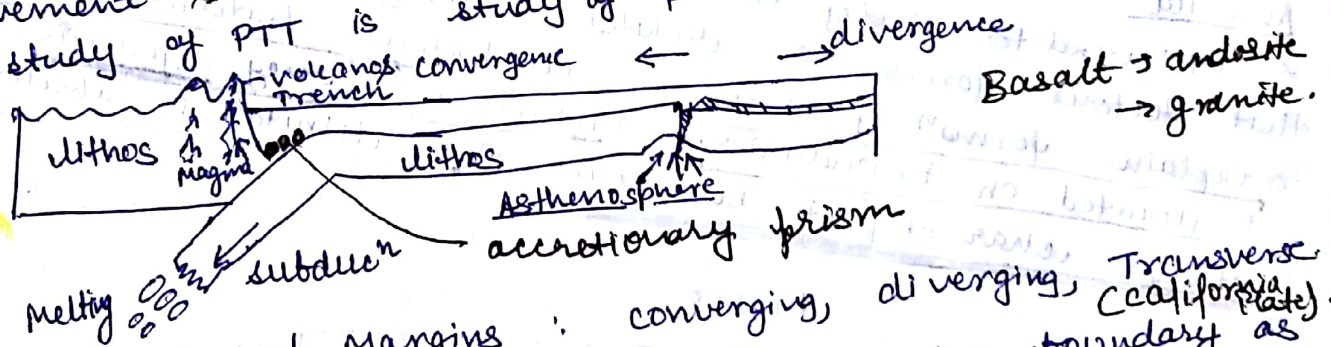 vement is study of
study of PTT is
volcanos convergence ← → divergence
Trench
Basalt → andosite
→ granite.
lithos
Magma
lithos
Asthenosphere
accretionary prism
subducⁿ
Melting
Margins : converging, diverging, Transverse
(California plate).
boundary as